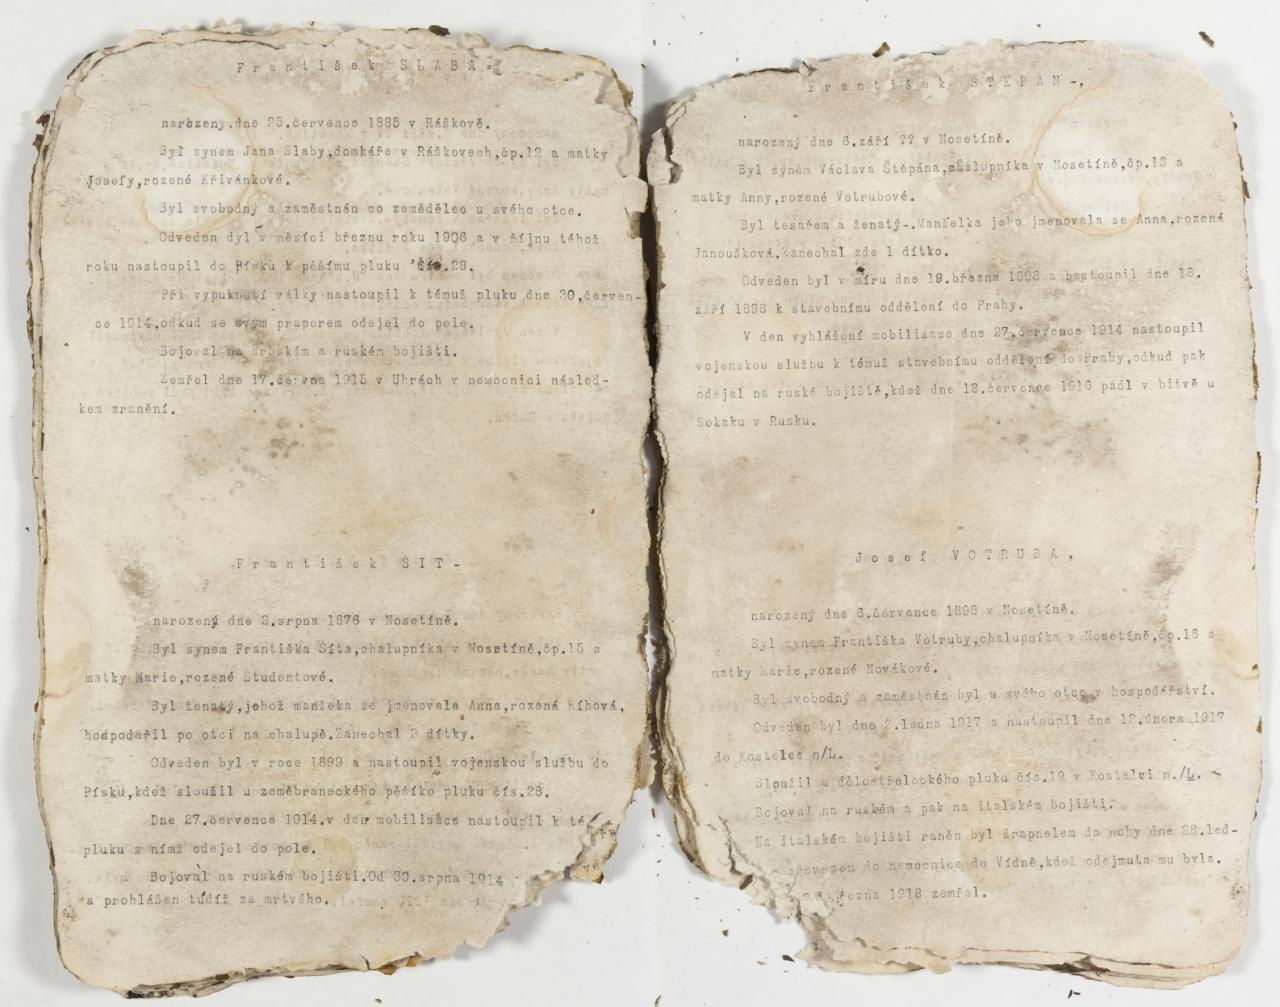 František SLABA-
narozeny.dne 25.července 1885 v Ráškově.
Byl synem Jana Slaby,domkáře v Ráškovech,čp.12 a matky
Josefy,rozené Křivánkové.
Byl svobodný a zaměstnán co zemědělec u svého otce.
Odveden dyl v měsíci březnu roku 1906 a v říjnu téhož
roku nastoupil do Písku k pěšímu pluku čís.28.
Při vypuknutí války nastoupil k témuž pluku dne 30.červen-
ce 1914,odkud se svým praporem odejel do pole.
Bojoval na srbském a ruském bojišti.
Zemřel dne 17.června 1915 v Uhrách v nemocnici násled-
kem zranění.
František ŠIT-
narozený dne 2.srpna 1876 v Nosetíně.
Byl synem Františka Šíta,chalupníka v Nosetíně,čp.15 a
matky Marie,rozené Studentové.
Byl ženatý,jehož manžeka se jmenovala Anna,rozená Říhová,
hospodařil po otci na chalupě.Zanechal 2 dítky.
Odveden byl v roce 1899 a nastoupil vojenskou službu do
Písku,kdež sloužil u zeměbraneckého pěšího pluku čís.28.
Dne 27.července 1914.v den mobilisace nastoupil k
pluku s nímž odejel do pole.
Bojoval na ruském bojišti.Od 30.srpna 1914
a prohlášen tudíž za mrtvého.
František ŠTĚPÁN-,
narozený dne 6.září ?? v Nosetíně.
Byl synem Václava Štěpána,chalupníka v Nosetíně,čp.13 a
matky Anny,rozené Votrubové.
Byl tesařem a ženatý-.Manželka jeho jmenovala se Anna,rozená
Janoušková.Zanechal zde 1 dítko.
Odveden byl v míru dne 19.března 1898 a nastoupil dne 18.
září 1898 k stavebnímu oddělení do Prahy.
V den vyhlášení mobilisace dne 27.července 1914 nastoupil
vojenskou službu k témuž stavebnímu oddělení do Prahy,odkud pak
odejel na ruské bojiště,kdež dne 18.července 1916 padl v bitvě u
Sokaku v Rusku.
Josef VOTRUBA,
narozený dne 6.července 1898 v Nosetíně.
Byl synem Františka Votruby,chalupníka v Nosetíně,čp.16 a
matky Marie,rozené Novákové.
Byl svobodný a zaměstnán byl u svého otce v hospodářství.
Odveden byl dne 2.ledna 1917 a nastoupil dne 12.února 1917
do Kostelce n/L.
Sloužil u dělostřeleckého pluku čís.19 v Kostelci n./L.
Bojoval na ruském a pak na italském bojišti.
Na italském bojišti raněn byl šrapnelem do nohy dne 28.led-
převezen do nemocnice do Vídně,kdež odejmuta mu byla.
března 1918 zemřel.